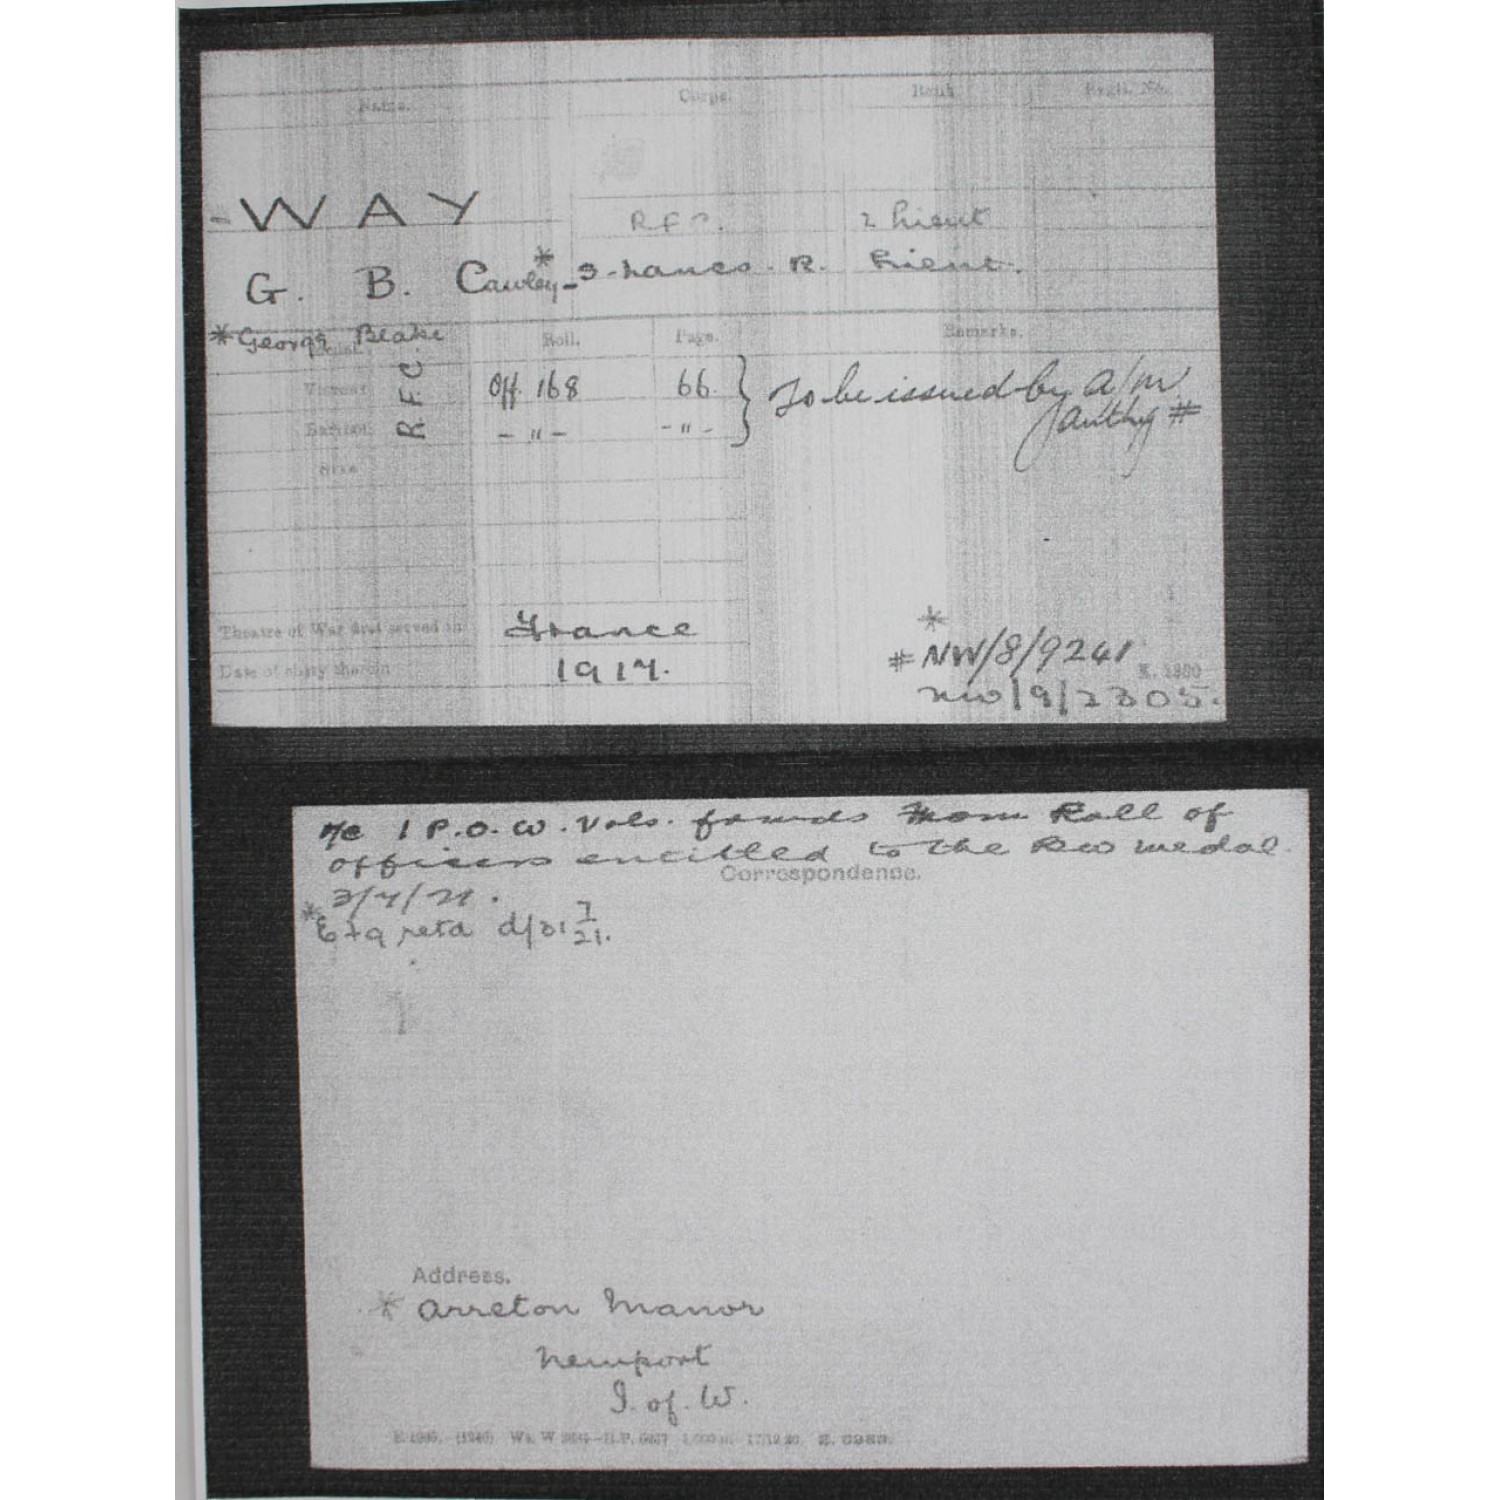 Name. Corps. Rank Regtl. No.
-WAY
R.F.C. 2 Lieut
G. B. Cawley- * 3- Lancs. R. Lieut.
*George Blake Roll. Page. Remarks.
Medal.
Victory R.F.C. Off. 168 66. } To be issued by A/M
British - " - - " - Authy #
Star
Theatre of War first served in France
Date of entry therein 1917.
*
# NW/8/9241
K. 1380
NW/9/2305.
1 P.O.W. Vols. fowds Nom Roll of
officers entitled to the BW medal.
Correspondence.
3/7/21.
* retd d/31 7/21.
Address.
* Arreton Manor
Newport
I. of. W.